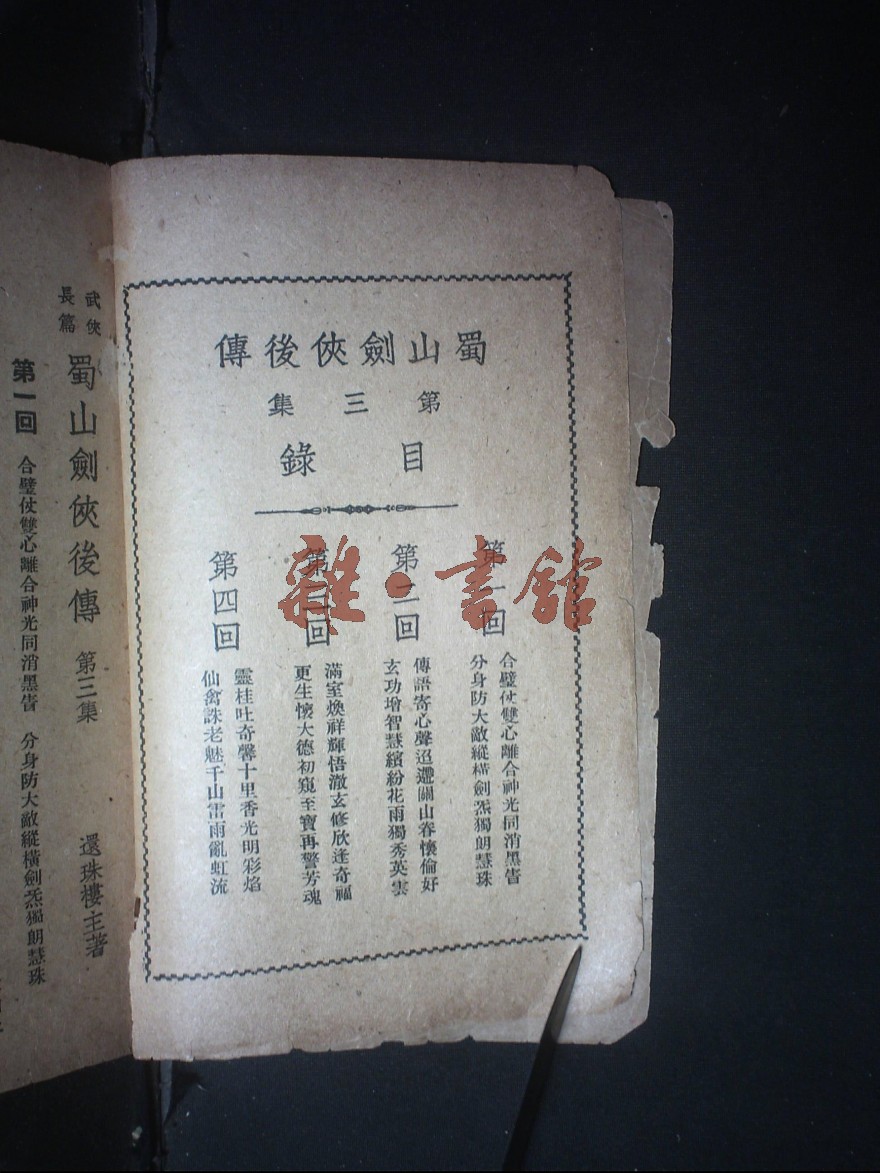 蜀山劍俠後傳
第三集
目錄
第一回
合璧仗雙心離合神光同消黑眚
分身防大敵縱橫劍炁獨朗慧珠
第二回
傳語寄心聲迢遞關山眷懷倫好
玄功增智慧繽紛花雨獨秀英雲
第三回
滿室煥祥輝悟澈玄修欣逢奇福
更生懷大德初窺至寶再警芳魂
第四回
靈桂吐奇馨十里香光明彩焰
仙禽誅老魅千山雷雨亂虹流
雜·書館
武俠
長篇
蜀山劍俠後傳 第三集 還珠樓主著
第一回 合璧仗雙心離合神光同消黑眚 分身防大敵縱橫劍炁獨朗慧珠